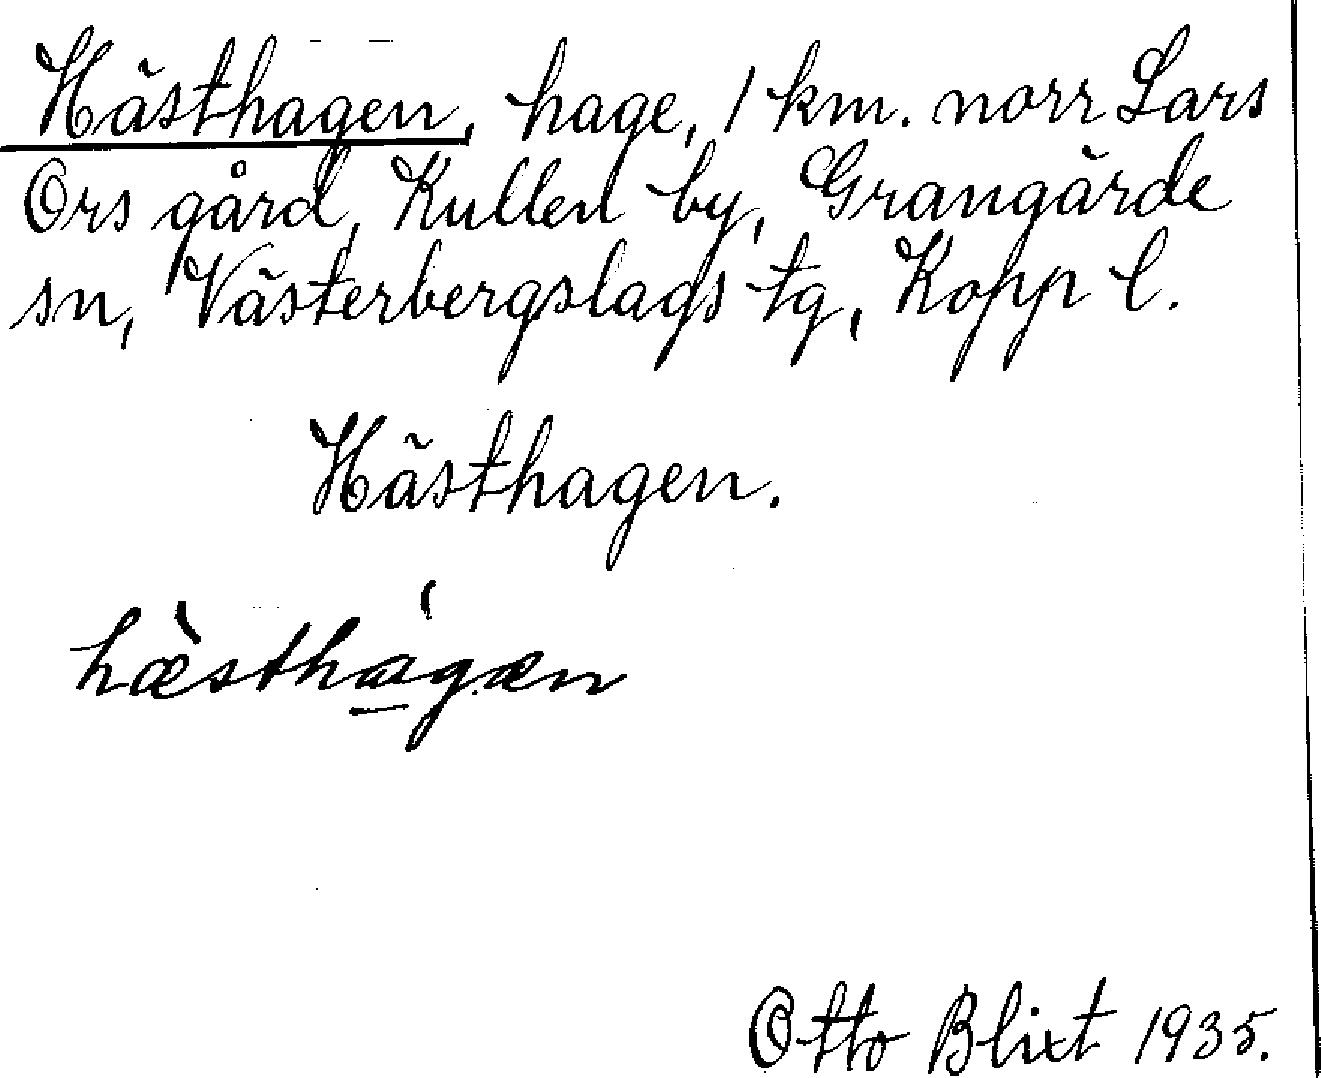 Hästhagen, hage, 1 km. norr Lars
Ors gård, Kullen by, Grangärde
sn, Västerbergslags tg, Kopp l.
Hästhagen.
hæ̀sthá̱gæn
Otto Blixt 1935.